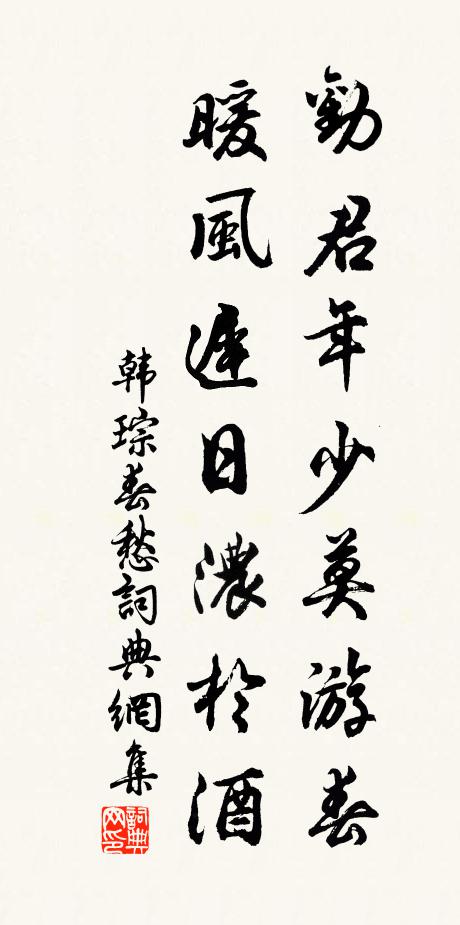 勸君年少莫游春
暖風遲日濃於酒
韩琮春愁詞典網集
詞典
网印